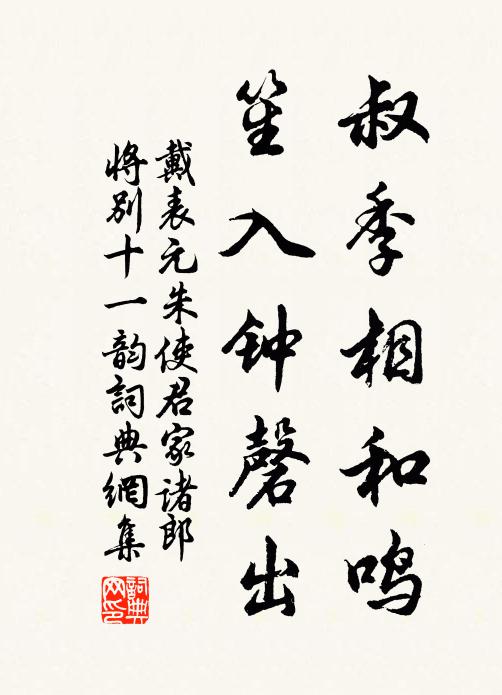 叔季相和鸣
笙入钟磬出
戴表元朱使君家诸郎
将别十一韵詞典網集
詞典網印